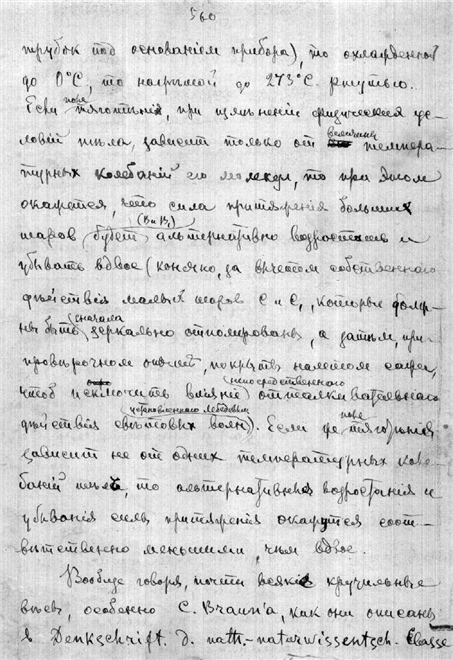 560
трубок под основаніем прибора), то охлажденной
до 0°C, то нагрѣтой до 273°C. ртутью.
Если поле тяготѣнія, при измѣненіи физическихъ ус-
ловій тѣла, зависит только от величины темпера-
турных колебаній его молекул, то при этом
окажется, что сила притяженія больших
шаров (В и В₁) будет альтернативно возростать и
убывать вдвое (конечно, за вычетом собственнаго
дѣйствія малых шаров С и С₁, которые долж-
ны быть сначала зеркально отполированы, а затѣм, при
провѣрочном опытѣ, покрыты налетом сажи,
чтоб исключить вліяніе непосредственнаго отталкивательнаго
дѣйствія установленнаго Лебедевым свѣтовых волн). Если же поле тяготѣнія
зависит не от одних температурных коле-
баній тѣла, то альтернативныя возростанія и
убыванія силы притяженія окажутся соот-
вѣтственно меньшими, чѣм вдвое.
Вообще говоря, почти всякіе крутильные
вѣсы, особенно С. Braun'a, как они описаны
в Denkschrift. d. math.-naturwissentsch. Classe